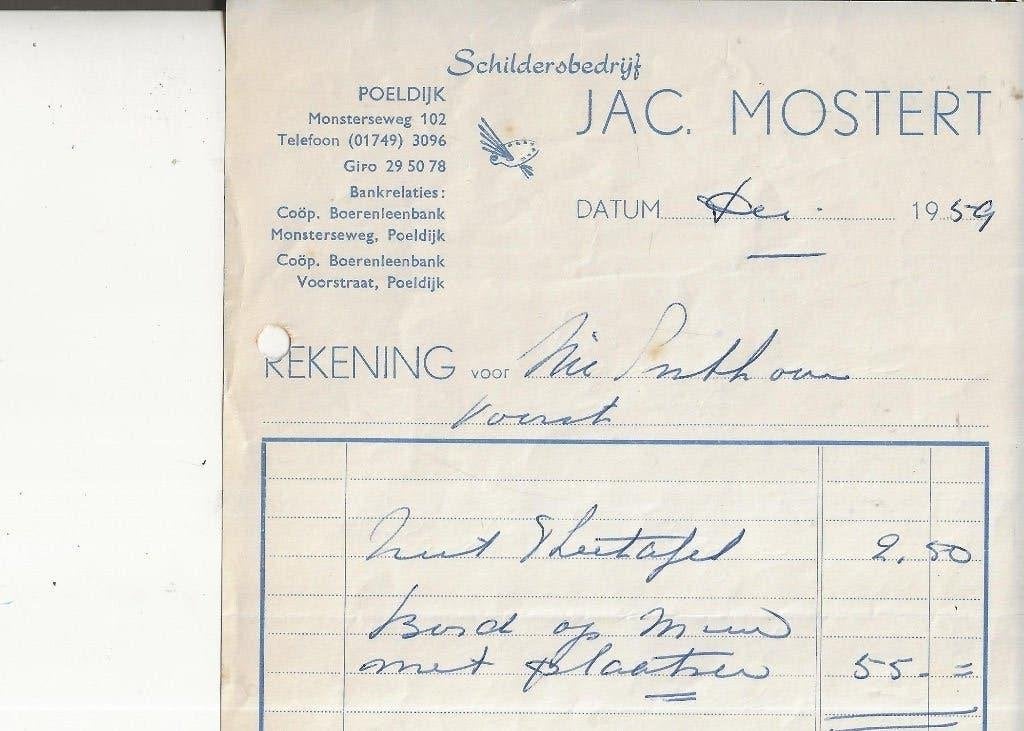 Schildersbedrijf
JAC. MOSTERT
POELDIJK
Monsterseweg 102
Telefoon (01749) 3096
Giro 29 50 78
Bankrelaties:
Coöp. Boerenleenbank
Monsterseweg, Poeldijk
Coöp. Boerenleenbank
Voorstraat, Poeldijk
DATUM Dec. 1959
REKENING voor Nic
Voorst
Theetafel 2.50
Bord op Muur
met plaatsen 55.=